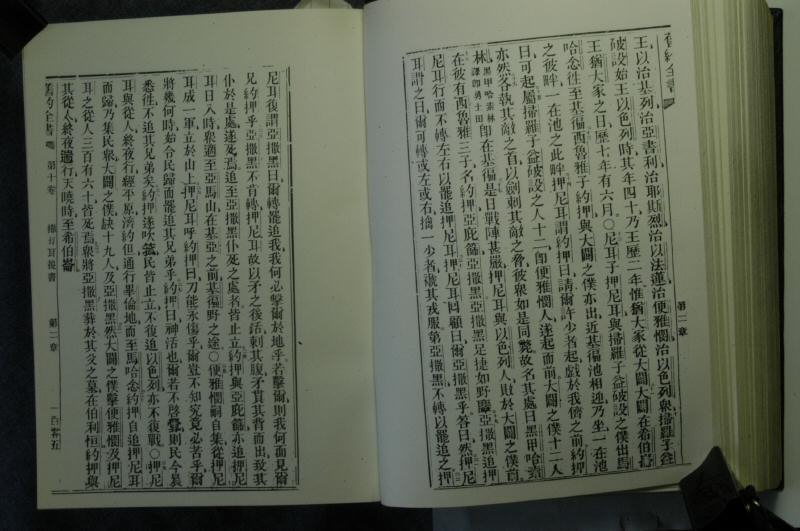 舊約全書
王以治基列治亞書利治耶斯烈治以法蓮治便雅憫治以色列衆掃羅子益
破設始王以色列時其年四十乃王歷二年惟猶大家從大闢大闢在希伯崙
王猶大家之日歷七年有六月〇尼耳子押尼耳與掃羅子益破設之僕出馬
哈念往至基徧西魯雅子約押與大闢之僕亦出近基徧池相迎乃坐一在池
之彼畔一在池之此畔押尼耳謂約押曰請爾許少者起戲於我儕之前約押
曰可起屬掃羅子益破設之人十二卽便雅憫人遂起而前大闢之僕十二人
亦然各執其敵之首以劍刺其敵之脅彼衆如是同斃故名其處曰黑甲哈素
林黑甲哈素林譯卽勇士田卽在基徧是日戰陣甚嚴押尼耳與以色列人敗於大闢之僕前
在彼有西魯雅三子名約押亞庇篩亞撒黑亞撒黑足捷如野麞亞撒黑追押
尼耳行而不轉左右以罷追押尼耳押尼耳回顧曰爾亞撒黑乎答曰然押尼
耳謂之曰爾可轉或左或右擒一少者褫其戎服第亞撒黑不轉以罷追之押
第二章
尼耳復謂亞撒黑曰爾轉罷追我我何必擊爾於地乎若擊爾則我何面見爾
兄約押乎亞撒黑不肯轉押尼耳故以矛之後銛刺其腹矛貫其背而出致其
仆於是處遂死焉追至亞撒黑仆死之處者皆止立約押與亞庇篩亦追押尼
耳日入時衆適至亞馬山在基亞之前基徧野之途〇便雅憫嗣自集從押尼
耳成一軍立於山上押尼耳呼約押曰刀能永傷乎爾豈不知究竟必苦乎爾
將幾何時始令民歸而罷追其兄弟乎約押曰神活也爾若不啓釁則民今晨
悉往不追其兄弟矣約押遂吹號民皆止立不復追以色列亦不復戰〇押尼
耳與從人終夜行經平原濟約但通行畢倫地而至馬哈念約押自追押尼耳
而歸乃集民衆大闢之僕缺十九人及亞撒黑然大闢之僕擊便雅憫及押尼
耳之從人三百有六十皆死焉衆將亞撒黑葬於其父之墓在伯利恒約押與
其從人終夜遄行天曉時至希伯崙
舊約全書 第十卷 撒母耳後書 第二章 一百零五